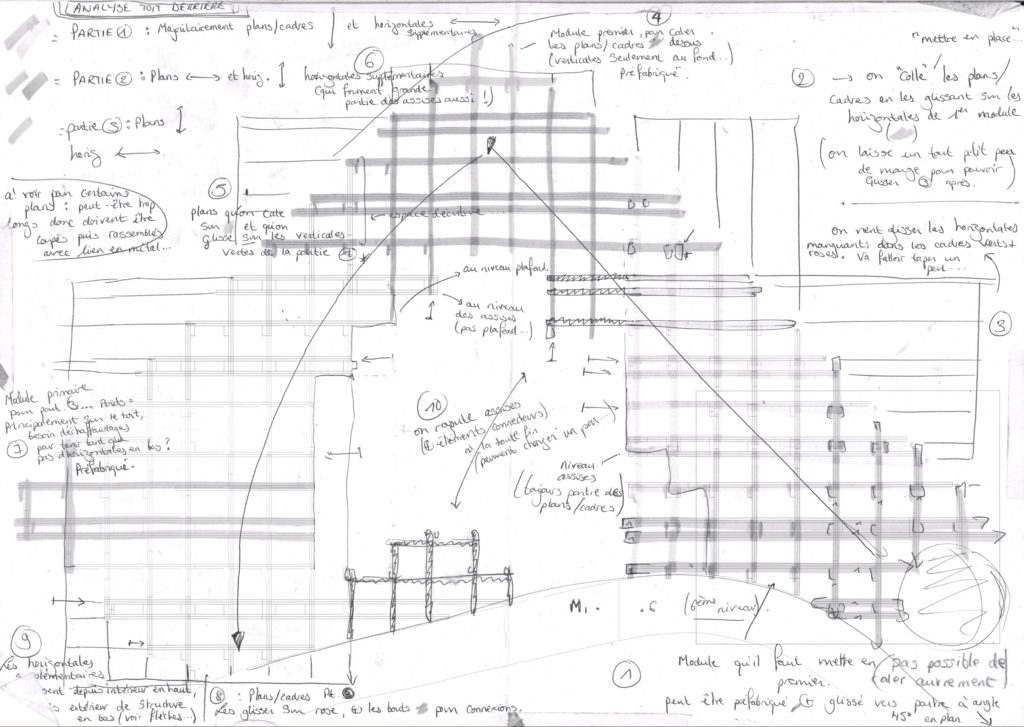 ANALYSE TOIT DERRIERE
= PARTIE ① : Majoritairement plans/cadres ↓ et horizontales ↔
supplémentaires
= PARTIE ② : Plans ↔ et horiz. ↕
= partie ③ : Plans ↕
horiz ↔
⑥
horizontales supplémentaires
(qui forment grande
partie des assises aussi !)
④
Module premier, pour caler
les plans/cadres dessus
(verticales seulement au fond...)
Préfabriqué.
"mettre en place"...
② → on "colle" les plans/
cadres en les glissant sur les
horizontales de 1er module
(on laisse un tout petit peu
de marge pour pouvoir
glisser ③ après.
on vient glisser les horizontales
manquants dans les cadres verts+
roses). Va falloir taper un
peu...
③
à voir pour certains
plans : peut-être trop
longs donc doivent être
coupés puis rassemblés
avec lien en métal...
⑤
plans qu'on cale
sur et qu'on
glisse sur les verticales
vertes de la partie ④
← espace d'écriture ...
au niveau plafond.
→ au niveau
des assises
(pas plafond...)
Module primaire
pour part
principalement sur le toit,
besoin d'échaffaudages
pour tenir tant que
pas d'horizontales en bas ?
Préfabriqué.
⑦
⑩
on rajoute assises
(+ éléments connecteurs)
à la toute fin
(peuvent changer un peu...)
niveau
assises
(toujours partie des
plans/cadres)
M1. .6 (6ème niveau).
⑨
Les horizontales
sont depuis intérieur en haut,
extérieur de structure
en bas (voir flèches...)
⑧ : Plans/cadres
Les glisser sur rose, + les bouts pour connexions.
① Module qu'il faut mettre en
premier.
(pas possible de
caler autrement)
peut être préfabriqué + glissé vers partie à angle
45° en plan